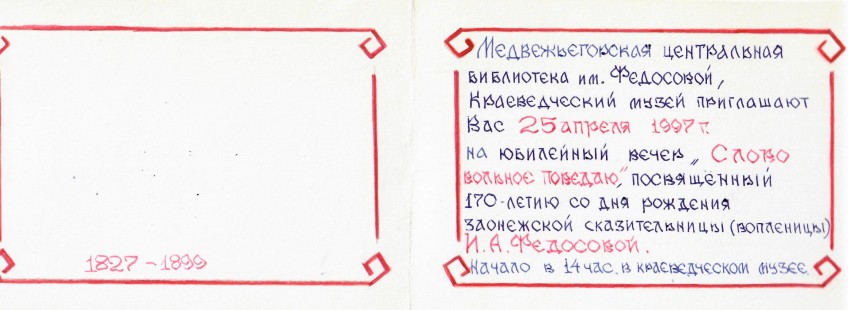 1827 – 1899
Медвежьегорская центральная
библиотека им. Федосовой,
Краеведческий музей приглашают
Вас 25 апреля 1997 г.
на юбилейный вечер „Слово
вольное поведаю", посвящённый
170-летию со дня рождения
заонежской сказительницы (вопленицы)
И. А. Федосовой.
Начало в 14 час. в краеведческом музее.